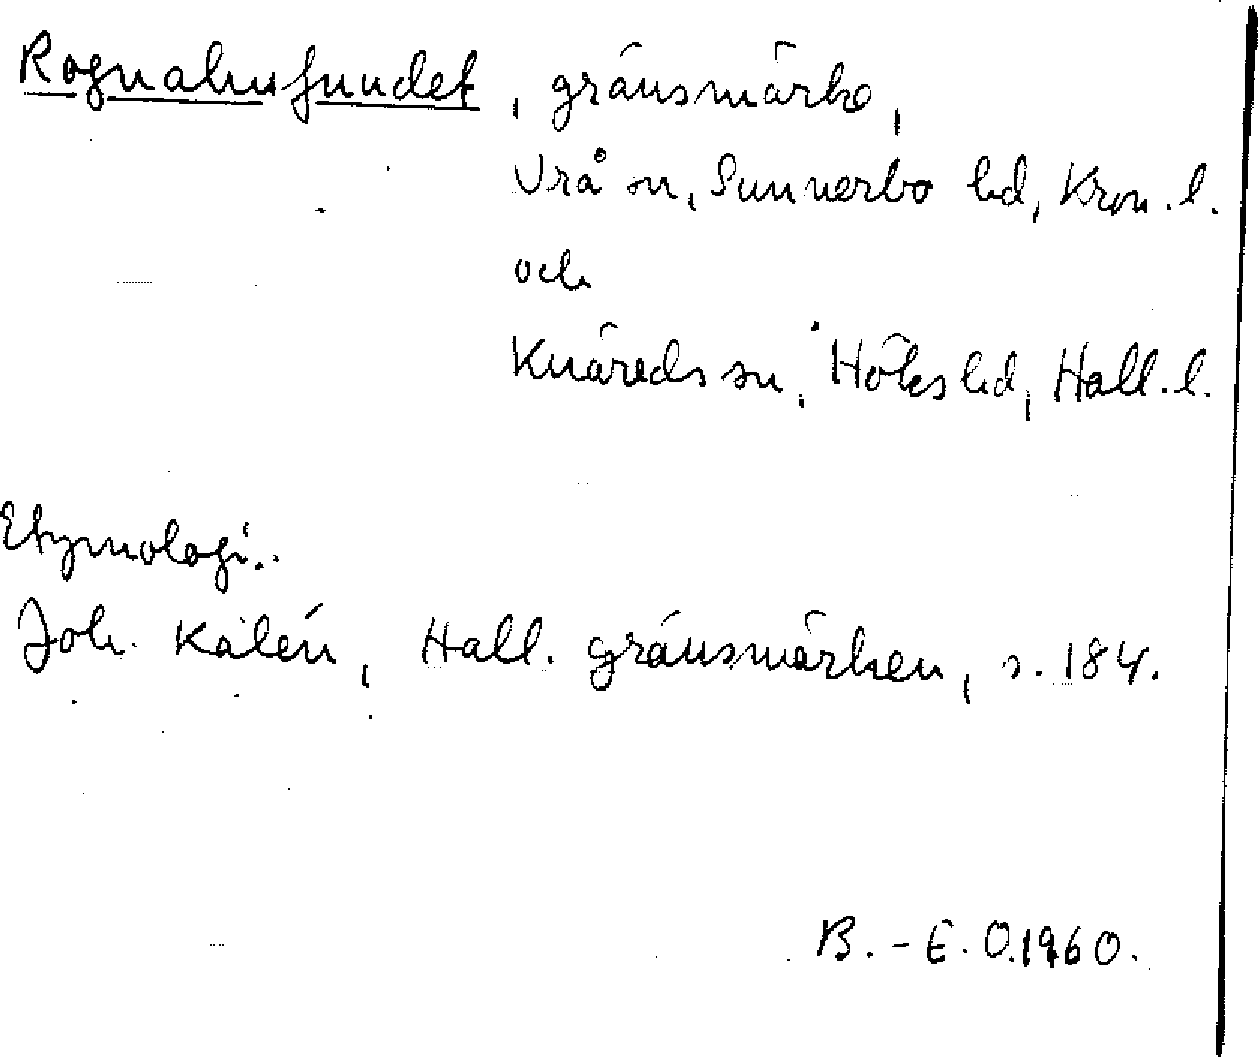 Rognalnsfundet, gränsmärke,
Vrå sn, Sunnerbo hd, Kron. l.
och
Knäreds sn, Höks hd, Hall. l.
Etymologi.
Joh. Kalén, Hall. gränsmärken, s. 184.
B.-E. O. 1960.